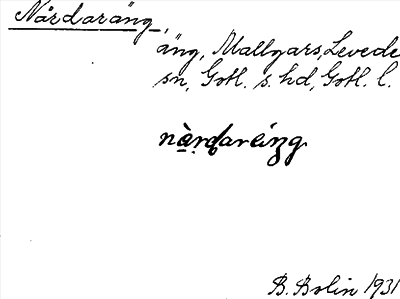 Nårdaräng,
äng, Mallgars, Levede
sn, Gotl. s. hd, Gotl. l.
B. Bolin 1931